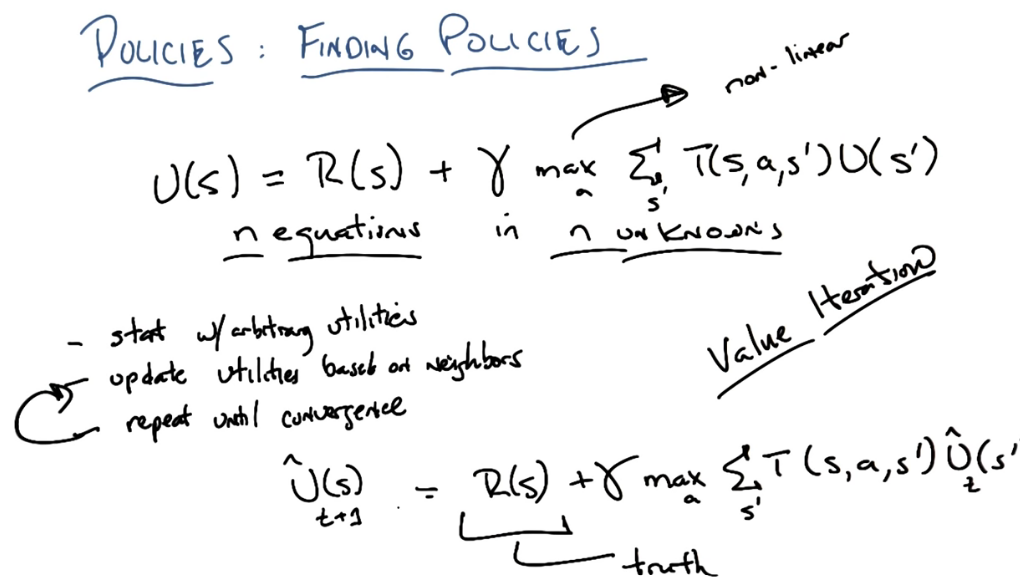 POLICIES : FINDING POLICIES
non-linear
U(s) = R(s) + γ max_a Σ_s' T(s,a,s') U(s')
n equations in n unknowns
Value Iteration
- start w/ arbitrary utilities
- update utilities based on neighbors
repeat until convergence
Û_t+1(s) = R(s) + γ max_a Σ_s' T(s,a,s') Û_t(s'
truth